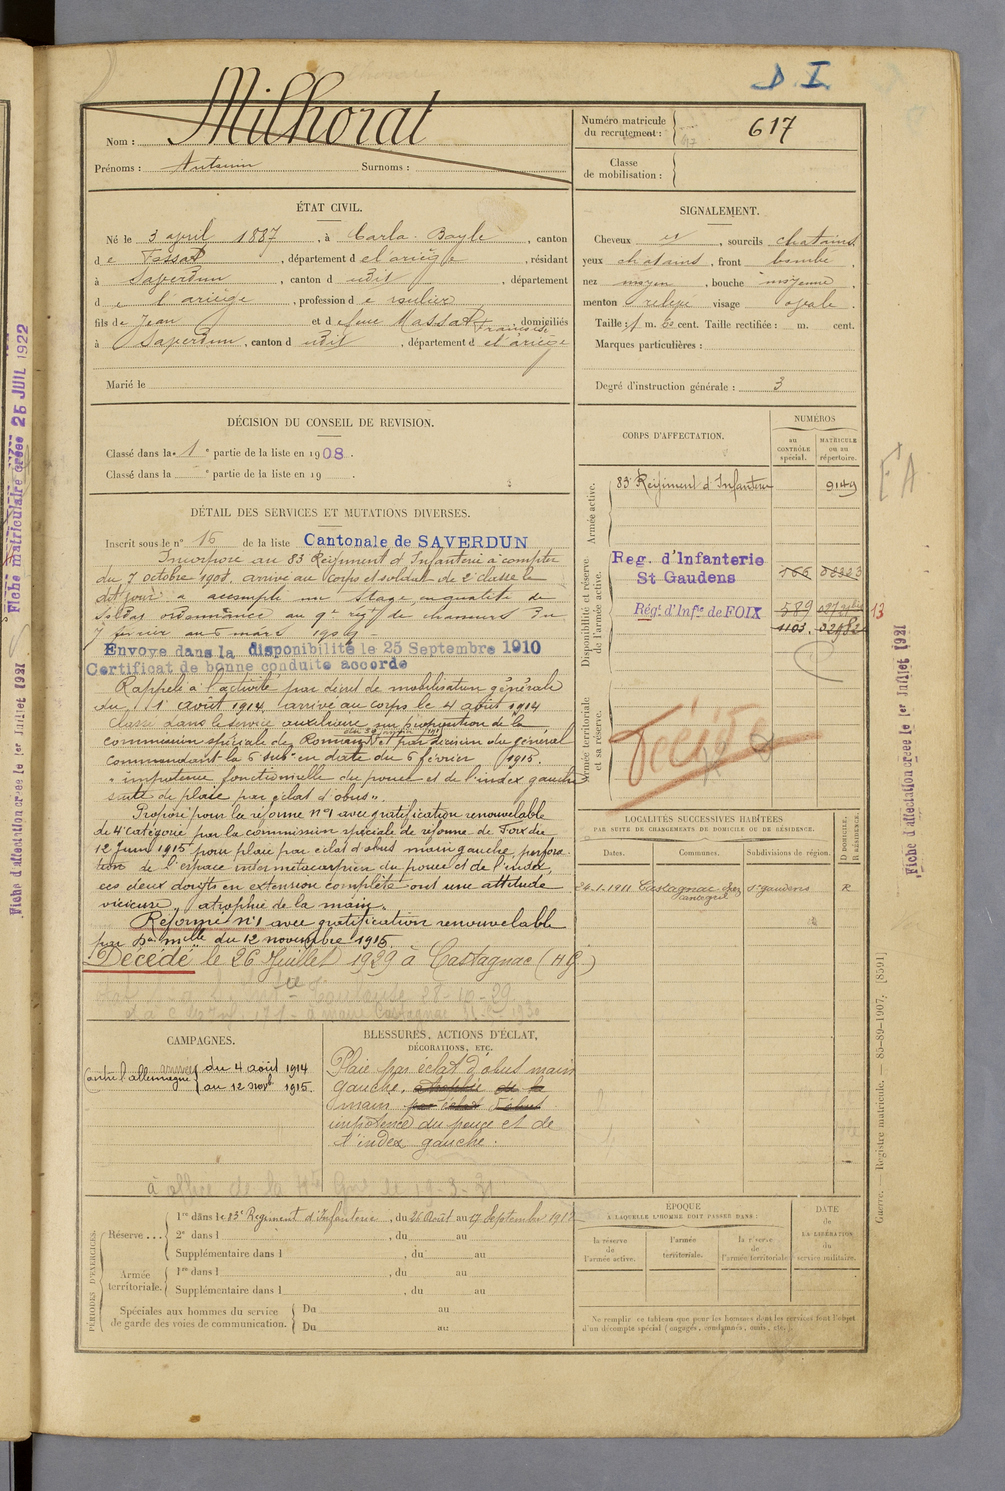 D I
Nom : Milhorat
Prénoms : Antonin Surnoms :
Numéro matricule
du recrutement : 617
Classe
de mobilisation :
ÉTAT CIVIL.
Né le 3 april 1887, à Carla-Bayle, canton
de Fossat, département de l'ariège, résidant
à Saverdun, canton dudit, département
de l'ariège, profession de
fils de Jean et de feue Massat Françoise, domiciliés
à Saverdun, canton dudit, département de l'ariège
Marié le
SIGNALEMENT.
Cheveux et, sourcils chatains
yeux chatains, front bombé
nez moyen, bouche moyenne
menton relevé visage ovale
Taille : 1 m. cent. Taille rectifiée : m. cent.
Marques particulières :
Degré d'instruction générale : 3
DÉCISION DU CONSEIL DE REVISION.
Classé dans la 1e partie de la liste en 1908.
Classé dans la e partie de la liste en 19 .
DÉTAIL DES SERVICES ET MUTATIONS DIVERSES.
Inscrit sous le n° 16 de la liste Cantonale de SAVERDUN
Incorporé au 83 Régiment d'Infanterie à compter
du 7 octobre 1908, arrivé au corps et soldat de 2e classe le
dit jour a accompli un stage en qualité de
soldat ordonnance au 9e régt de chasseurs du
7 février au 6 mars 1909 -
Envoyé dans la disponibilité le 25 Septembre 1910
Certificat de bonne conduite accordé
Rappelé à l'activité par décret de mobilisation générale
du 1er Août 1914, arrivé au corps le 4 août 1914
Classé dans le service auxiliaire sur proposition de la
commission spéciale de Romans et par décision du général
commandant la 6 sub^on en date du 6 février 1915.
"impotence fonctionnelle du pouce et de l'index gauche
suite de plaie par éclat d'obus".
Proposé pour la réforme n°1 avec gratification renouvelable
de 4e catégorie par la commission spéciale de réforme de Foix du
12 Juin 1915 pour plaie par éclat d'obus main gauche, perfora-
tion de l'espace intermétacarpien du pouce et de l'index,
ces deux doigts en extension complète ont une attitude
vicieuse, atrophie de la main.
Réformé n°1 avec gratification renouvelable
par don mille du 12 novembre 1915.
Décédé le 26 Juillet 1929 à Castagnac (H G.)
Toulouse 28-10-29
CORPS D'AFFECTATION.
NUMÉROS
au
CONTRÔLE
spécial.
MATRICULE
OU AU
répertoire.
Armée active.
83e Régiment d'Infanterie 9149
Disponibilité et réserve
de l'armée active.
Reg. d'Infanterie
St Gaudens 166
Régt d'Infie de FOIX 589 13
1103
Armée territoriale
et sa réserve.
Décédé
LOCALITÉS SUCCESSIVES HABITÉES
PAR SUITE DE CHANGEMENTS DE DOMICILE OU DE RÉSIDENCE.
Dates. Communes. Subdivisions de région.
D DOMICILE.
R RÉSIDENCE.
26-1-1911 Castagnac chez St gaudens R
CAMPAGNES.
Contre l'allemagne du 4 août 1914
au 12 novb 1915.
BLESSURES, ACTIONS D'ÉCLAT,
DÉCORATIONS, ETC.
Plaie par éclat d'obus main
gauche, atrophie de la
main par éclat d'obus
impotence du pouce et de
l'index gauche.
PÉRIODES D'EXERCICES.
Réserve...
1re dans le 83e Régiment d'Infanterie, du 26 Août au 17 Septembre 1912
2e dans l , du au
Supplémentaire dans l , du au
Armée
territoriale.
1re dans l , du au
Supplémentaire dans l , du au
Spéciales aux hommes du service
de garde des voies de communication.
Du au
Du au
ÉPOQUE
À LAQUELLE L'HOMME DOIT PASSER DANS :
la réserve
de
l'armée active.
l'armée
territoriale.
la réserve
de
l'armée territoriale
DATE
de
LA LIBÉRATION
du
service militaire.
Ne remplir ce tableau que pour les hommes dont les services font l'objet
d'un décompte spécial (engagés, condamnés, omis, etc.).
Guerre. — Registre matricule. — 85-89-1907. [8591]
Fiche d'affectation créée le 1er Juillet 1921
FA
Fiche matriculaire créée 25 JUIL 1922
Fiche d'affectation créée le 1er Juillet 1921